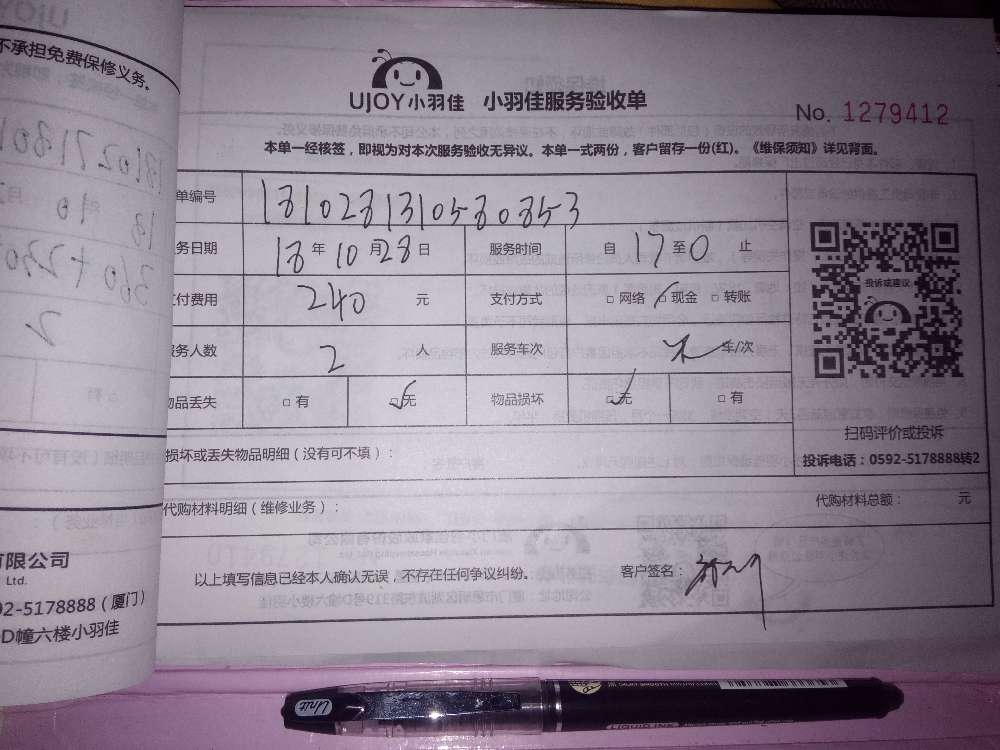 不承担免费保修义务。
UJOY小羽佳 小羽佳服务验收单
No. 1279412
本单一经核签，即视为对本次服务验收无异议。本单一式两份，客户留存一份(红)。《维保须知》详见背面。
单编号 1810281310580853
务日期 18 年 10 月 28 日 服务时间 自 17 至 0 止
付费用 240 元 支付方式 □ 网络 □ 现金 □ 转账
务人数 2 人 服务车次 车/次
物品丢失 □ 有 □ 无 物品损坏 □ 无 □ 有
投诉或建议
扫码评价或投诉
投诉电话：0592-5178888转2
损坏或丢失物品明细（没有可不填）：
代购材料明细（维修业务）： 代购材料总额： 元
以上填写信息已经本人确认无误，不存在任何争议纠纷。 客户签名：
有限公司
Ltd.
92-5178888（厦门）
D幢六楼小羽佳
Unit